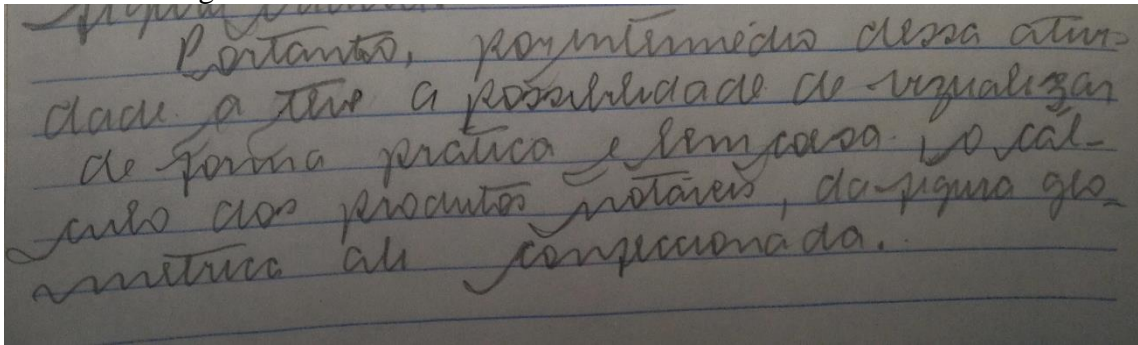 Portanto, por intermédio dessa ativi-
dade a teve a possibilidade de vizualizar
de forma prática e em casa o cál-
culo dos produtos notáveis, da figura geo-
métrica ali confeccionada.